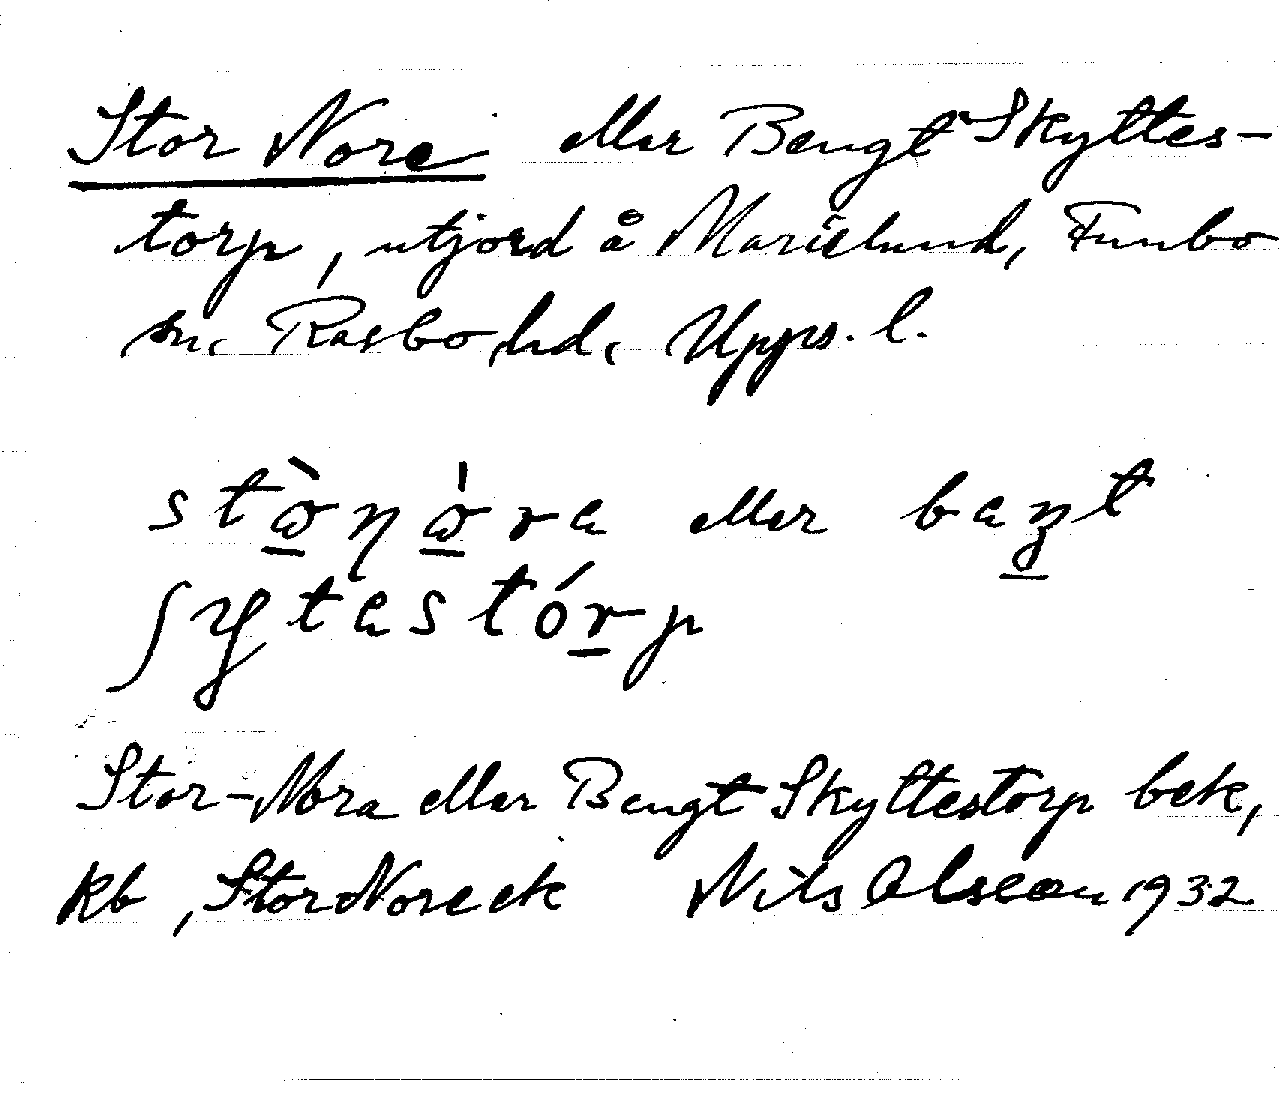 Stor Nore eller Bengt Skyttes-
torp, utjord å Marielund, Funbo
sn, Rasbo hd, Upps. l.
stò̱ŋó̱ra eller baŋ̱t
ʃytastórp
Stor-Nora eller Bengt Skyttestorp bek,
kb, Stor Nore ek Nils Olsson 1932